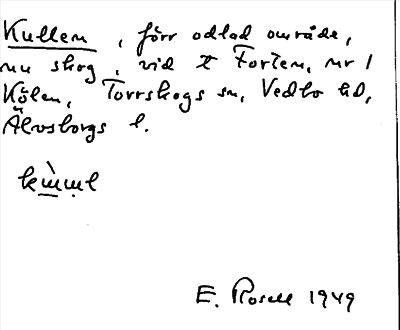 Kullen, förr odlad område,
nu skog, vid t Torten, nr 1
Kölen, Torrskogs sn, Vedbo hd,
Älvsborgs l.
E. Rosell 1949